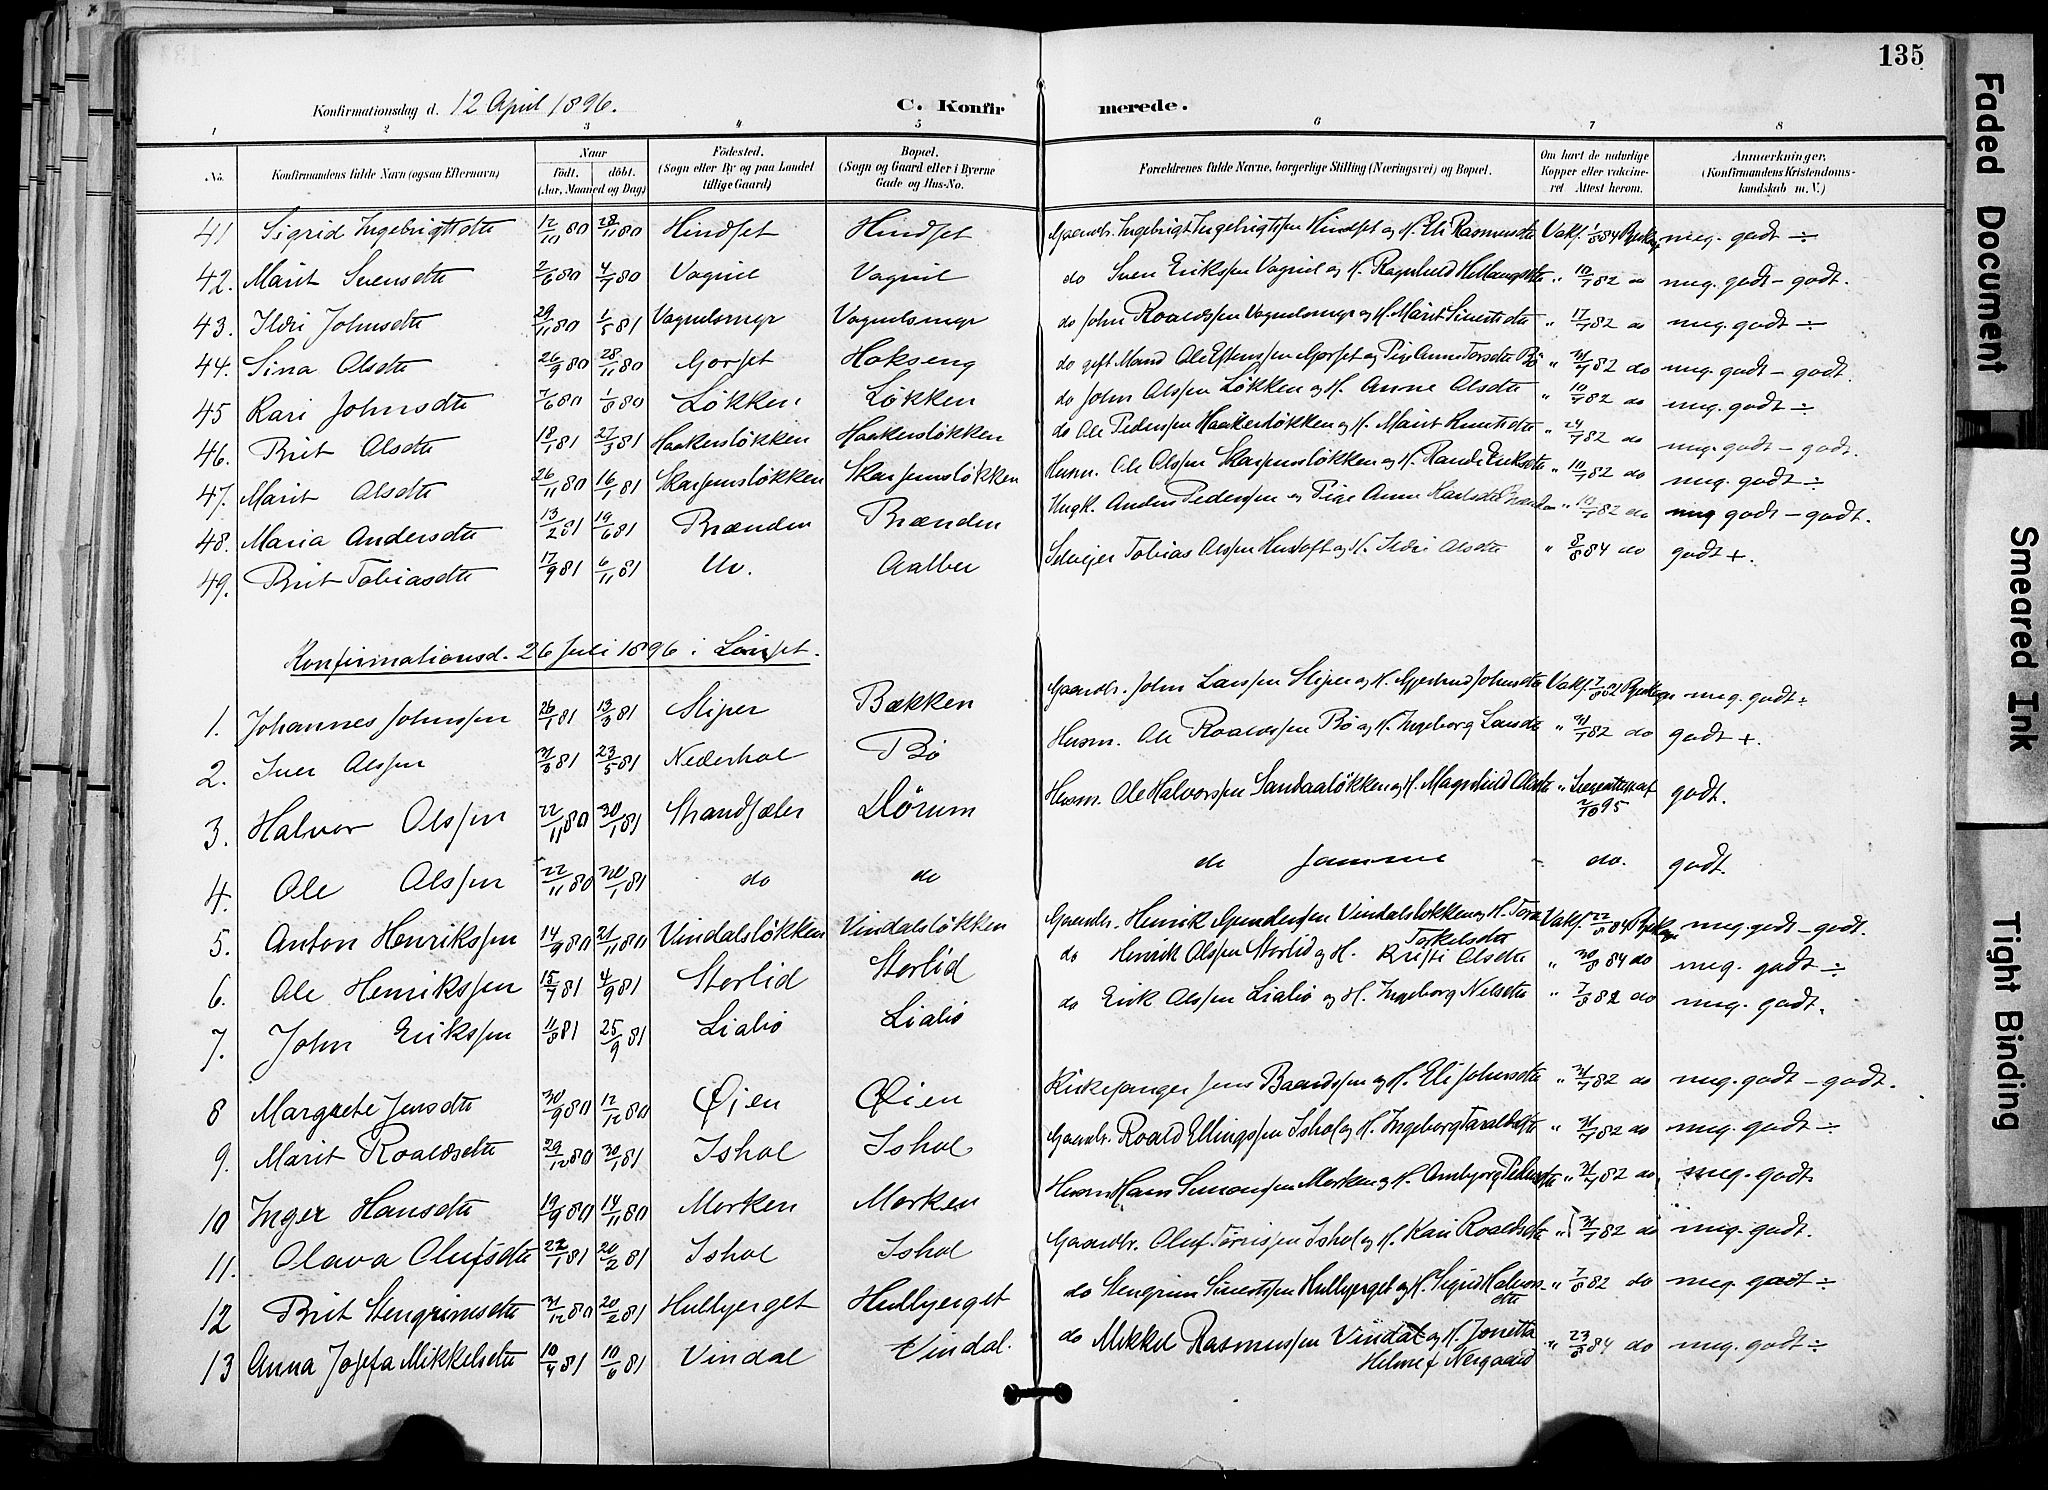 135
Konfirmationsdag d. 12 April 1896. C. Konfirmerede.
1 2 3 4 5 6 7 8
No. Konfirmandens fulde Navn (ogsaa Efternavn) Naar født. døbt. (Aar, Maaned og Dag) Fødested. (Sogn eller By og paa Landet tillige Gaard) Bopæl. (Sogn og Gaard eller i Byerne Gade og Hus-No. Forældrenes fulde Navne, borgerlige Stilling (Næringsvei) og Bopæl. Om havt de naturlige Kopper eller vaccineret Attest herom. Anmærkninger. (Konfirmandens Kristendomskundskab m. V.)
41 Sigrid Ingebrigtsdtr 12/10 80 28/11 80 Hindset Hindset Gaardbr. Ingebrigt Ingebrigtssen Hindset og H. Eli Rasmusdtr Vakc. 1/8 84 meg. godt ÷
42. Marit Svensdtr 2/6 80 4/7 80 Vagnil Vagnil do Sven Erikssen Vagnil og H. Ragnhild " 10/7 82 do meg. godt - godt.
43. Ildri Johnsdtr 29/11 80 1/5 81 Vagnilsmyr Vagnilsmyr do John Roaldssen Vagnilsmyr og H. Marit Sivertsdtr " 17/7 82 do meg. godt ÷
44. Sina Olsdtr 26/9 80 28/11 80 Gorset Hokseng do gift Mand Ole Estenssen Gorset og Pige Anne Torsdtr Bö " 31/7 82 do meg. godt - godt.
45 Kari Johnsdtr 7/6 80 1/8 80 Løkken Løkken do John Olssen Løkken og H. Anne Olsdtr " 10/7 82 do meg. godt ÷
46. Brit Olsdtr 18/1 81 27/3 81 Haakersløkken Haakersløkken do Ole Pederssen Haakersløkken og H. Marit Knutsdtr " 24/7 82 do meg. godt - godt.
47. Marit Olsdtr 26/11 80 16/1 81 Skarsemsløkken Skarsemsløkken Husm. Ole Olssen Skarsemsløkken og H. Randi Eriksdtr " 10/7 82 do meg. godt ÷
48. Maria Andersdtr 13/2 81 19/6 81 Brænden Brænden Ungk. Anders Pederssen og Pige Anne Karlsdtr Brænden " 10/7 82 do meg godt - godt.
49. Brit Tobiasdtr 17/9 81 6/11 81 Ur. Aalbu Selveier Tobias Olssen og H. Ildri Olsdtr " 8/8 84 do godt +.
Konfirmationsd. 26 Juli 1896 i Lönset.
1. Johannes Johnssen 26/1 81 13/3 81 Sliper Bækken Gaardbr. John Larssen Sliper og H. Gjertrud Johnsdtr Vakc. 7/8 82 meg. godt ÷
2. Iver Olssen 31/3 81 23/5 81 Nederhol Bö Husm. Ole Roaldssen Bö og H. Ingeborg Larsdtr " 31/7 82 do godt +.
3. Halvor Olssen 22/11 80 30/1 81 Strandsæter Dörum Husm. Ole Halvorssen Sandaaløkken og H. Magnhild Olsdtr " 2/10 95 godt.
4. Ole Olssen 22/11 80 30/1 81 do do de samme " do. godt.
5. Anton Henrikssen 14/9 80 21/11 80 Vindalsløkken Vindalsløkken Gaardbr. Henrik Gunderssen Vindalsløkken og H. Tora Torkelsdtr Vakc. 22/8 84 meg. godt - godt.
6. Ole Henrikssen 15/7 81 4/9 81 Storlid Storlid do Henrik Olssen Storlid og H. Kristi Olsdtr " 30/8 84 do meg. godt ÷
7. John Erikssen 11/8 81 25/9 81 Lialiö Lialiö do Erik Olssen Lialiö og H. Ingeborg Nilsdtr " 7/8 82 do meg. godt.
8 Margrete Jensdtr 30/9 80 12/12 80 Øien Øien Kirkesanger Jens Baardssen og H. Eli Johnsdtr " 31/7 82 do meg. godt - godt.
9. Marit Roaldsdtr 29/12 80 30/1 81 Ishol Ishol Gaardbr. Roald Ellingssen Ishol og H. Ingeborg Taraldsdtr " 31/7 82 do meg. godt ÷
10 Inger Hansdtr 19/9 80 14/11 80 Morken Morken Husm Hans Simonssen Morken og H. Ambjørg Pedersdtr " 31/7 82 do meg. godt.
11. Olava Olufsdtr 22/1 81 20/2 81 Ishol Ishol Gaardbr. Oluf Tørrissen Ishol og H. Kari Roaldsdtr " 31/7 82 do meg. godt.
12 Brit Stengrimsdtr 31/12 80 20/2 81 Hulbjerget Hulbjerget do Stengrim Sivertssen Hulbjerget og H. Sigrid Halvorsdtr " 7/8 82 do meg. godt ÷
13 Anna Josefa Mikkelsdtr 10/4 81 10/6 81 Vindal Vindal. do Mikkel Rasmussen Vindal og H. Jonetta Helme f. Nergaard " 23/8 84 do meg. godt ÷
Faded Document
Smeared Ink
Tight Binding